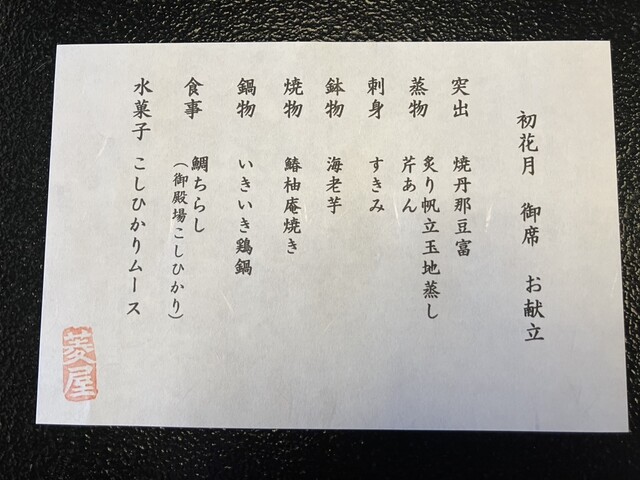 初花月 御席 お献立
突出 焼丹那豆富
蒸物 炙り帆立玉地蒸し
芹あん
刺身 すきみ
鉢物 海老芋
焼物 鰆柚庵焼き
鍋物 いきいき鶏鍋
食事 鯛ちらし
（御殿場こしひかり）
水菓子 こしひかりムース
菱屋